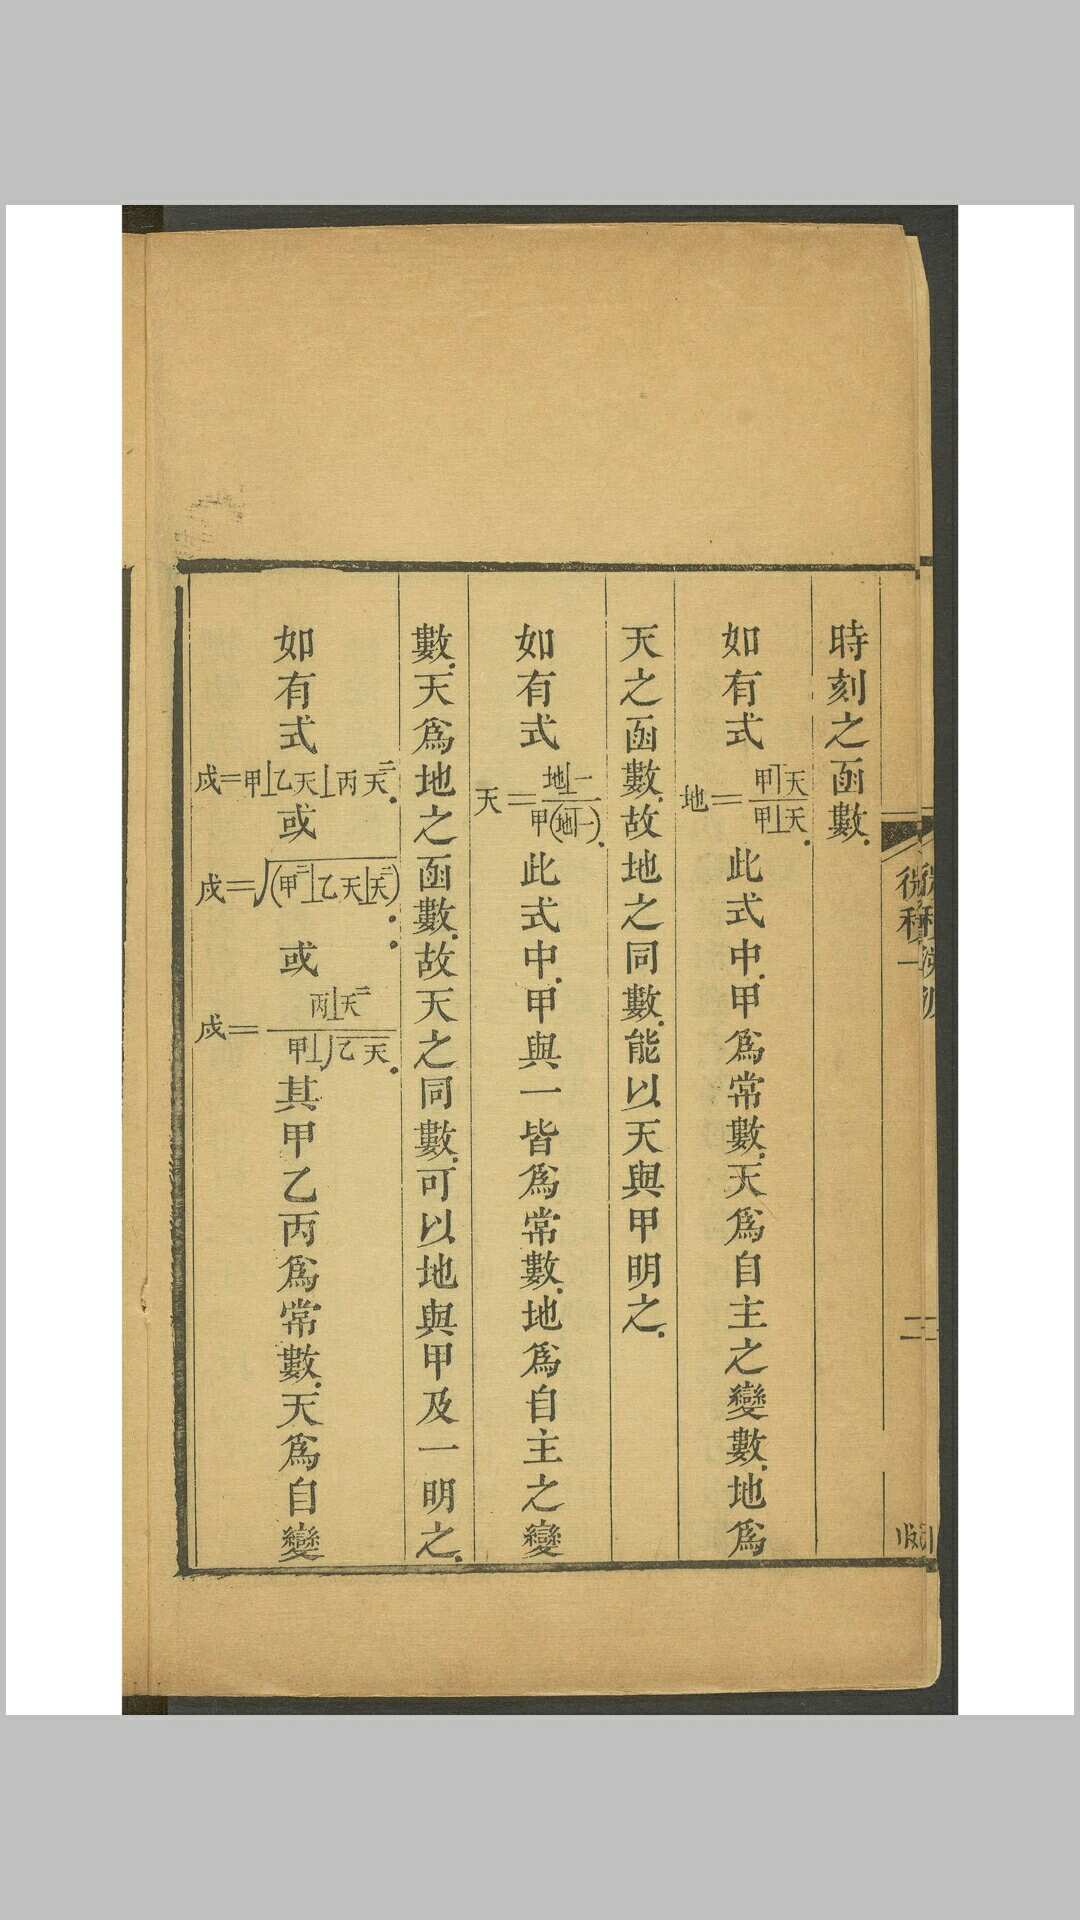 時刻之函數.
如有式 地＝甲丅天/甲丄天. 此式中.甲爲常數.天爲自主之變數.地爲
天之函數.故地之同數.能以天與甲明之.
如有式 天＝地丄一/甲(地丅一). 此式中.甲與一皆爲常數.地爲自主之變
數.天爲地之函數.故天之同數.可以地與甲及一明之.
如有式 戍＝甲丄乙天丄丙天二. 或 戍＝√(甲二丄乙天丄天二).. 或 戍＝丙丄天二/甲丄√乙天. 其甲乙丙爲常數.天爲自變
微積一
二